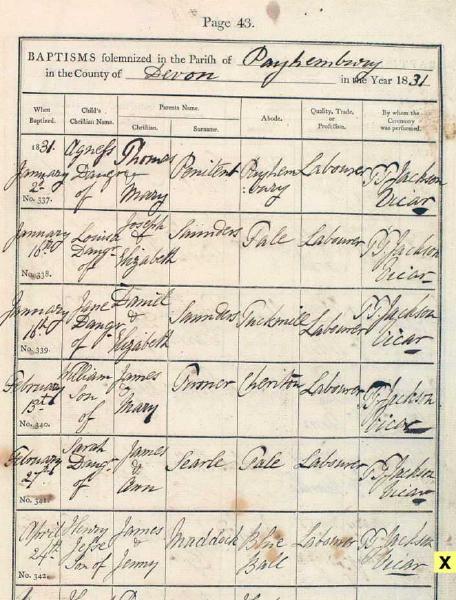 Page 43.
BAPTISMS solemnized in the Parish of Payhembury
in the County of Devon in the Year 1831
When Baptized. Child's Christian Name. Parents Name. Christian. Surname. Abode. Quality, Trade, or Profession. By whom the Ceremony was performed.
1831. Agness Thomas Penitent Payhem Labourer Jackson
January Daugr & bury Vicar
2d of Mary
No. 337.
January Louisa Joseph Saunders Pale Labourer Jackson
16th Daugr & Vicar
of Elizabeth
No. 338.
January Jane Daniel Saunders Tuckmill Labourer Jackson
16th Daugr & Vicar
of Elizabeth
No. 339.
February William James Cheriton Labourer Jackson
13th Son & Vicar
of Mary
No. 340.
February Sarah James Searle Pale Labourer Jackson
27th Daugr & Vicar
of Ann
No. 341.
April Henry James Maddock Blue Labourer Jackson
24th Jesse & Ball Vicar
Son of Jenny
No. 342.
X